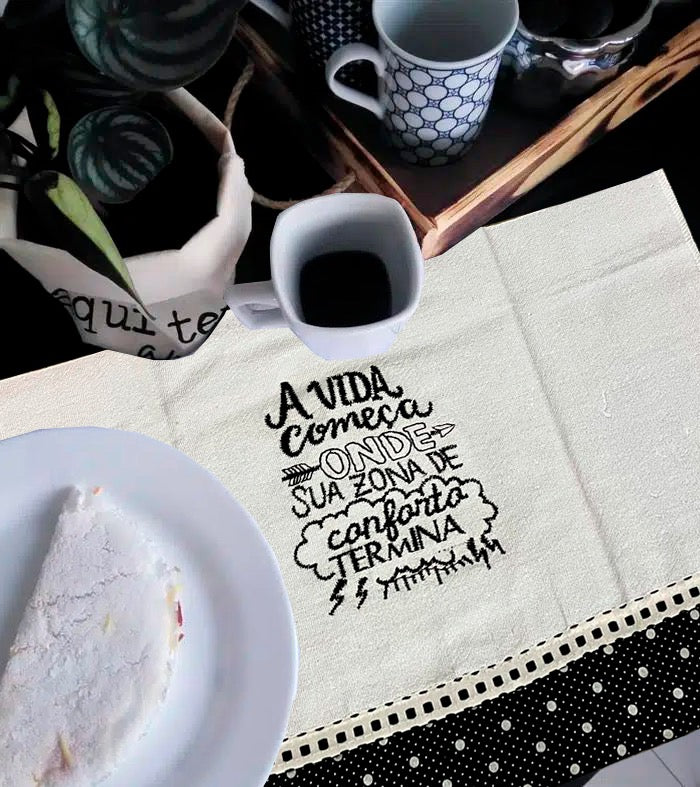 equi te
A VIDA
começa
ONDE
SUA ZONA DE
conforto
TERMINA